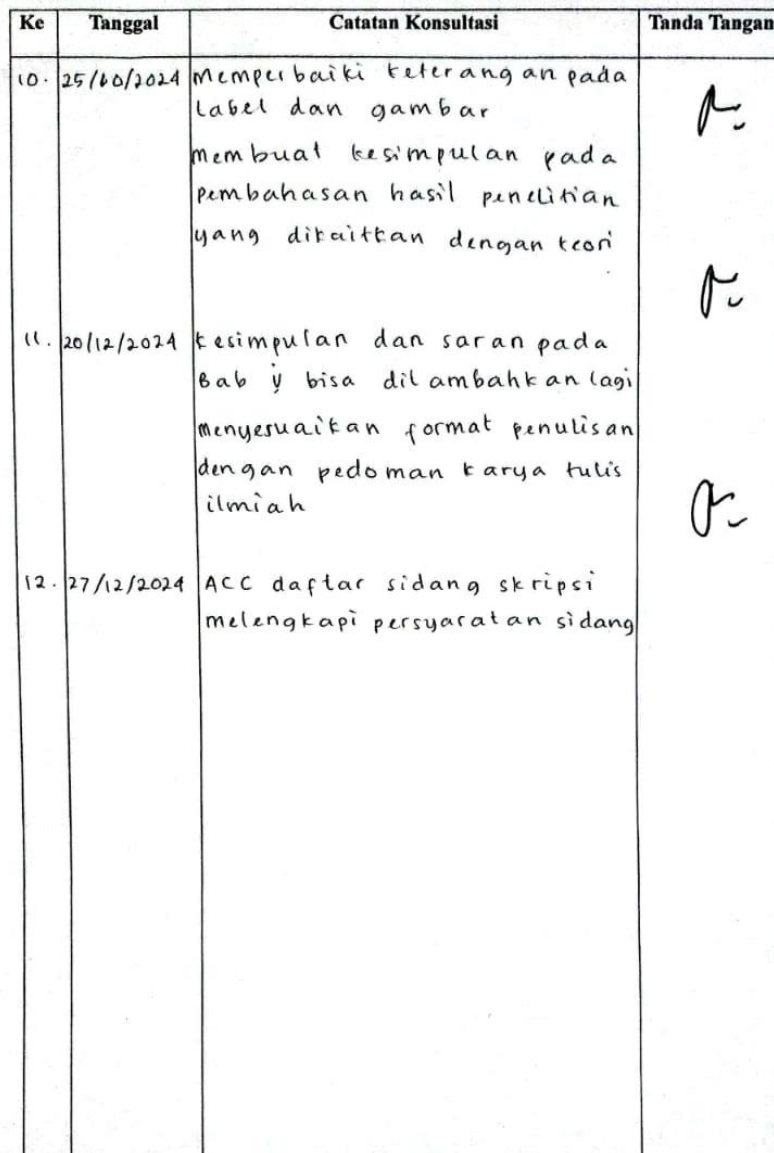 Ke Tanggal Catatan Konsultasi Tanda Tangan
10. 25/10/2024 Memperbaiki keterangan pada
Label dan gambar
membuat kesimpulan pada
pembahasan hasil penelitian
yang dikaitkan dengan teori
11. 20/12/2024 kesimpulan dan saran pada
Bab V bisa ditambahkan lagi
menyesuaikan format penulisan
dengan pedoman karya tulis
ilmiah
12. 27/12/2024 ACC daftar sidang skripsi
melengkapi persyaratan sidang